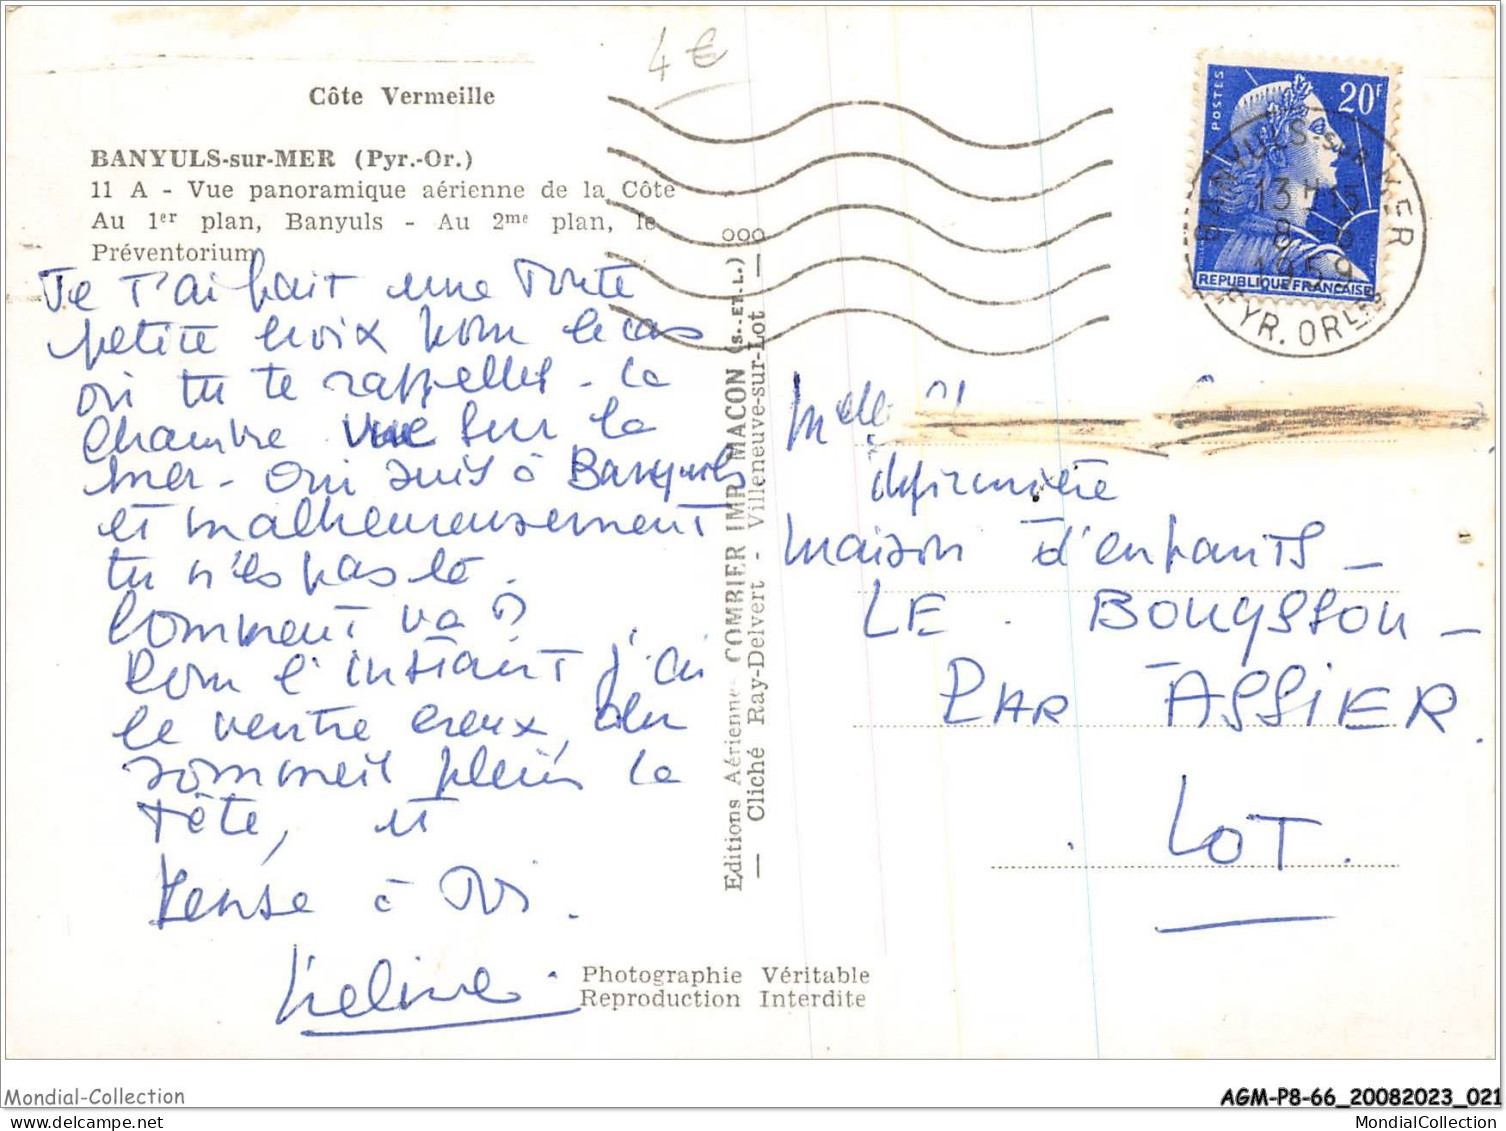 4 €
Côte Vermeille
BANYULS-sur-MER (Pyr.-Or.)
11 A - Vue panoramique aérienne de la Côte
Au 1er plan, Banyuls - Au 2me plan, le
Préventorium
Je t'ai fait une toute
petite croix pour le cas
où tu te rappelles - la
chambre vue sur la
mer - oui suis à Banyuls
et malheureusement
tu n'es pas là.
Comment va ?
Pour l'instant j'ai
le ventre creux, du
sommeil plein la
tête, et
pense à toi.
Editions Aériennes COMBIER IMP. MACON (S.-ET-L.) ooo
— Cliché Ray-Delvert - Villeneuve-sur-Lot —
Photographie Véritable
Reproduction Interdite
POSTES
20F
REPUBLIQUE FRANÇAISE
BANYULS-SUR-MER
13 H 15
1959
PYR. ORLES
Melle
infirmière
maison d'enfants -
LE BOUYSSOU -
PAR ASSIER.
LOT.
Mondial-Collection
AGM-P8-66_20082023_021
www.delcampe.net
MondialCollection